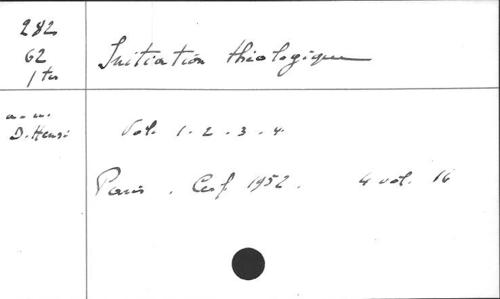 282
62
1 ter
Initiation théologique
a. m.
D. Henri
Vol. 1. 2. 3. 4.
Paris. Cerf 1952. 4 vol. 16